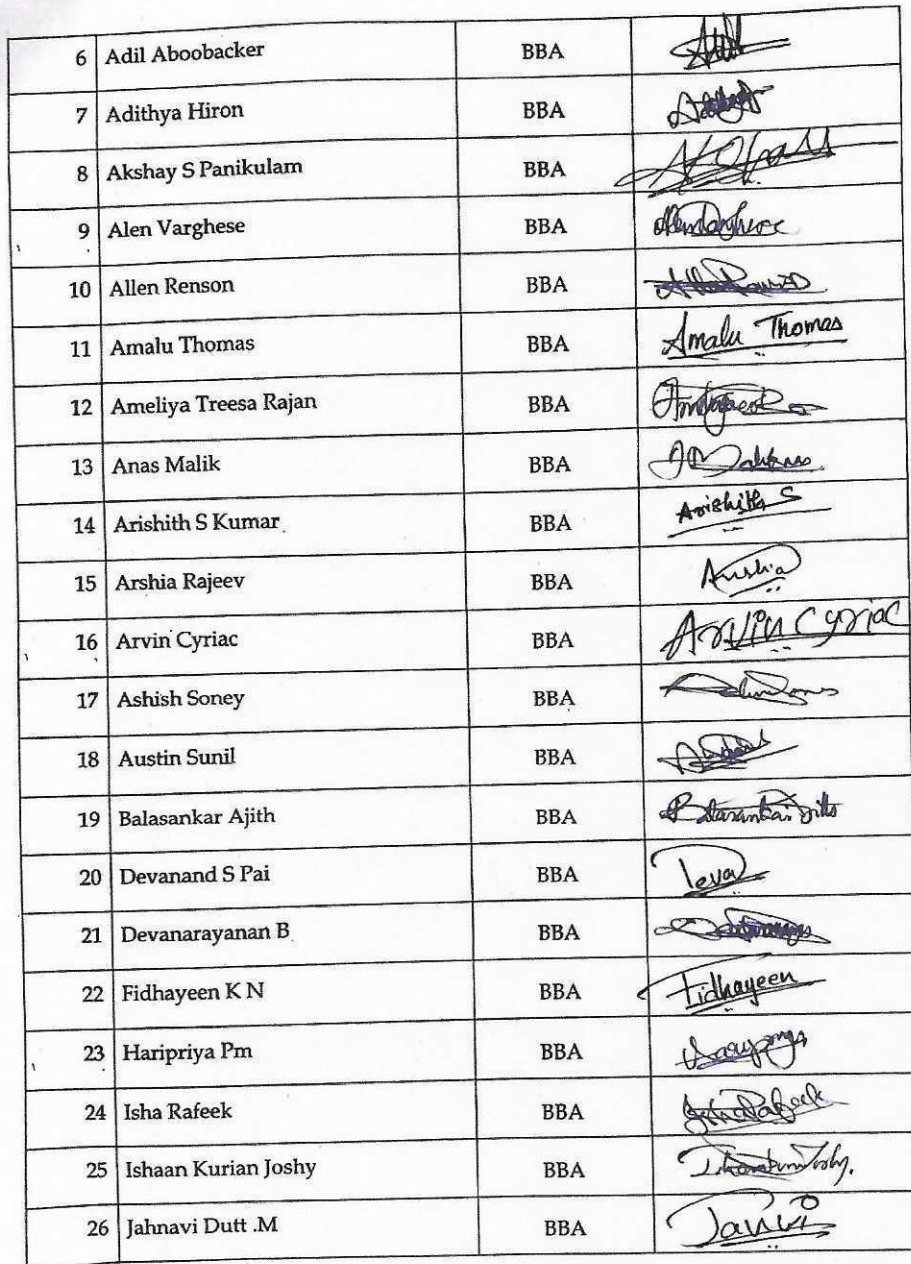 6 Adil Aboobacker BBA
7 Adithya Hiron BBA
8 Akshay S Panikulam BBA
9 Alen Varghese BBA
10 Allen Renson BBA
11 Amalu Thomas BBA Amalu Thomas
12 Ameliya Treesa Rajan BBA
13 Anas Malik BBA
14 Arishith S Kumar BBA Arishith S
15 Arshia Rajeev BBA Arshia
16 Arvin Cyriac BBA Arvin Cyriac
17 Ashish Soney BBA
18 Austin Sunil BBA
19 Balasankar Ajith BBA
20 Devanand S Pai BBA Deva
21 Devanarayanan B BBA
22 Fidhayeen K N BBA Fidhayeen
23 Haripriya Pm BBA
24 Isha Rafeek BBA Isha Rafeek
25 Ishaan Kurian Joshy BBA
26 Jahnavi Dutt .M BBA Janvi